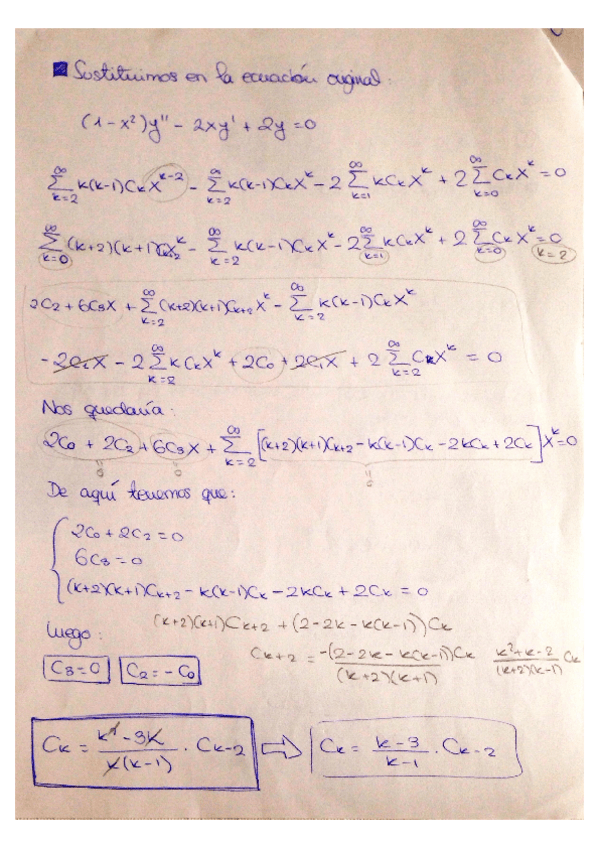 ■ Sustituimos en la ecuación original:
(1-x²)y'' - 2xy' + 2y = 0
∞∑k=2 k(k-1)CₖX^(k-2) - ∞∑k=2 k(k-1)CₖX^k - 2 ∞∑k=1 kCₖX^k + 2 ∞∑k=0 CₖX^k = 0
∞∑k=0 (k+2)(k+1)Cₖ₊₂X^k - ∞∑k=2 k(k-1)CₖX^k - 2 ∞∑k=1 kCₖX^k + 2 ∞∑k=0 CₖX^k = 0 k=2
2C₂ + 6C₃X + ∞∑k=2 (k+2)(k+1)Cₖ₊₂X^k - ∞∑k=2 k(k-1)CₖX^k
- 2C₁X - 2 ∞∑k=2 kCₖX^k + 2C₀ + 2C₁X + 2 ∞∑k=2 CₖX^k = 0
Nos quedaría:
2C₀ + 2C₂ + 6C₃X + ∞∑k=2 [(k+2)(k+1)Cₖ₊₂ - k(k-1)Cₖ - 2kCₖ + 2Cₖ] X^k = 0
0 0 0
De aquí tenemos que:
2C₀ + 2C₂ = 0
6C₃ = 0
(k+2)(k+1)Cₖ₊₂ - k(k-1)Cₖ - 2kCₖ + 2Cₖ = 0
(k+2)(k+1)Cₖ₊₂ + (2-2k-k(k-1))Cₖ
Luego:
Cₖ₊₂ = -(2-2k-k(k-1))Cₖ / (k+2)(k+1) k²+k-2 / (k+2)(k-1) Cₖ
C₃ = 0 C₂ = - C₀
Cₖ = k² - 3k / k(k-1) · Cₖ₋₂ ⇒ Cₖ = k-3 / k-1 · Cₖ₋₂